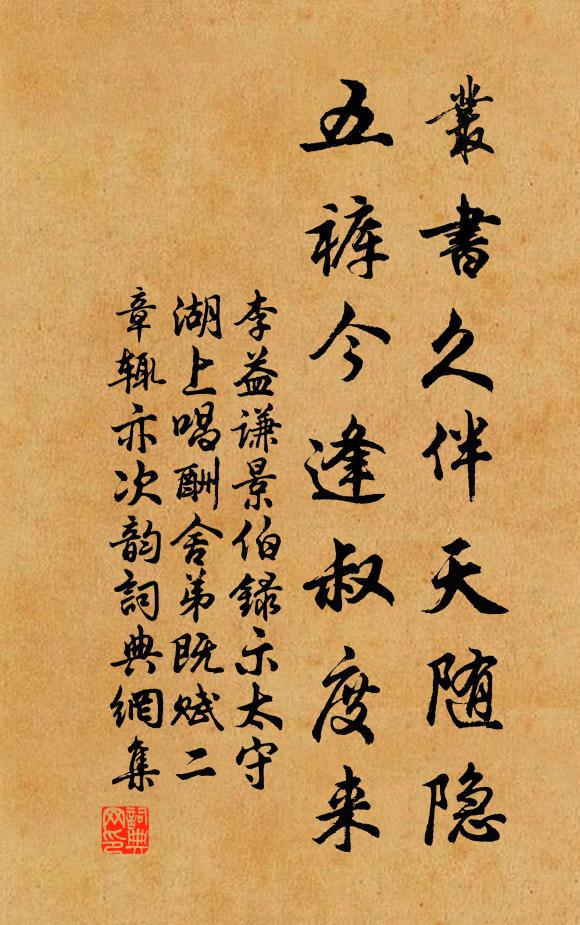 叢書久伴天随隐
五裤今逢叔度来
李益谦景伯録示太守
湖上唱酬舍弟既赋二
章辄亦次韵詞典網集
詞典网印